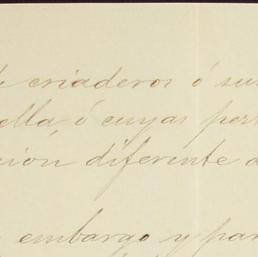 criaderos ó su
ella, ó cuyas per
ión diferente
embargo y par